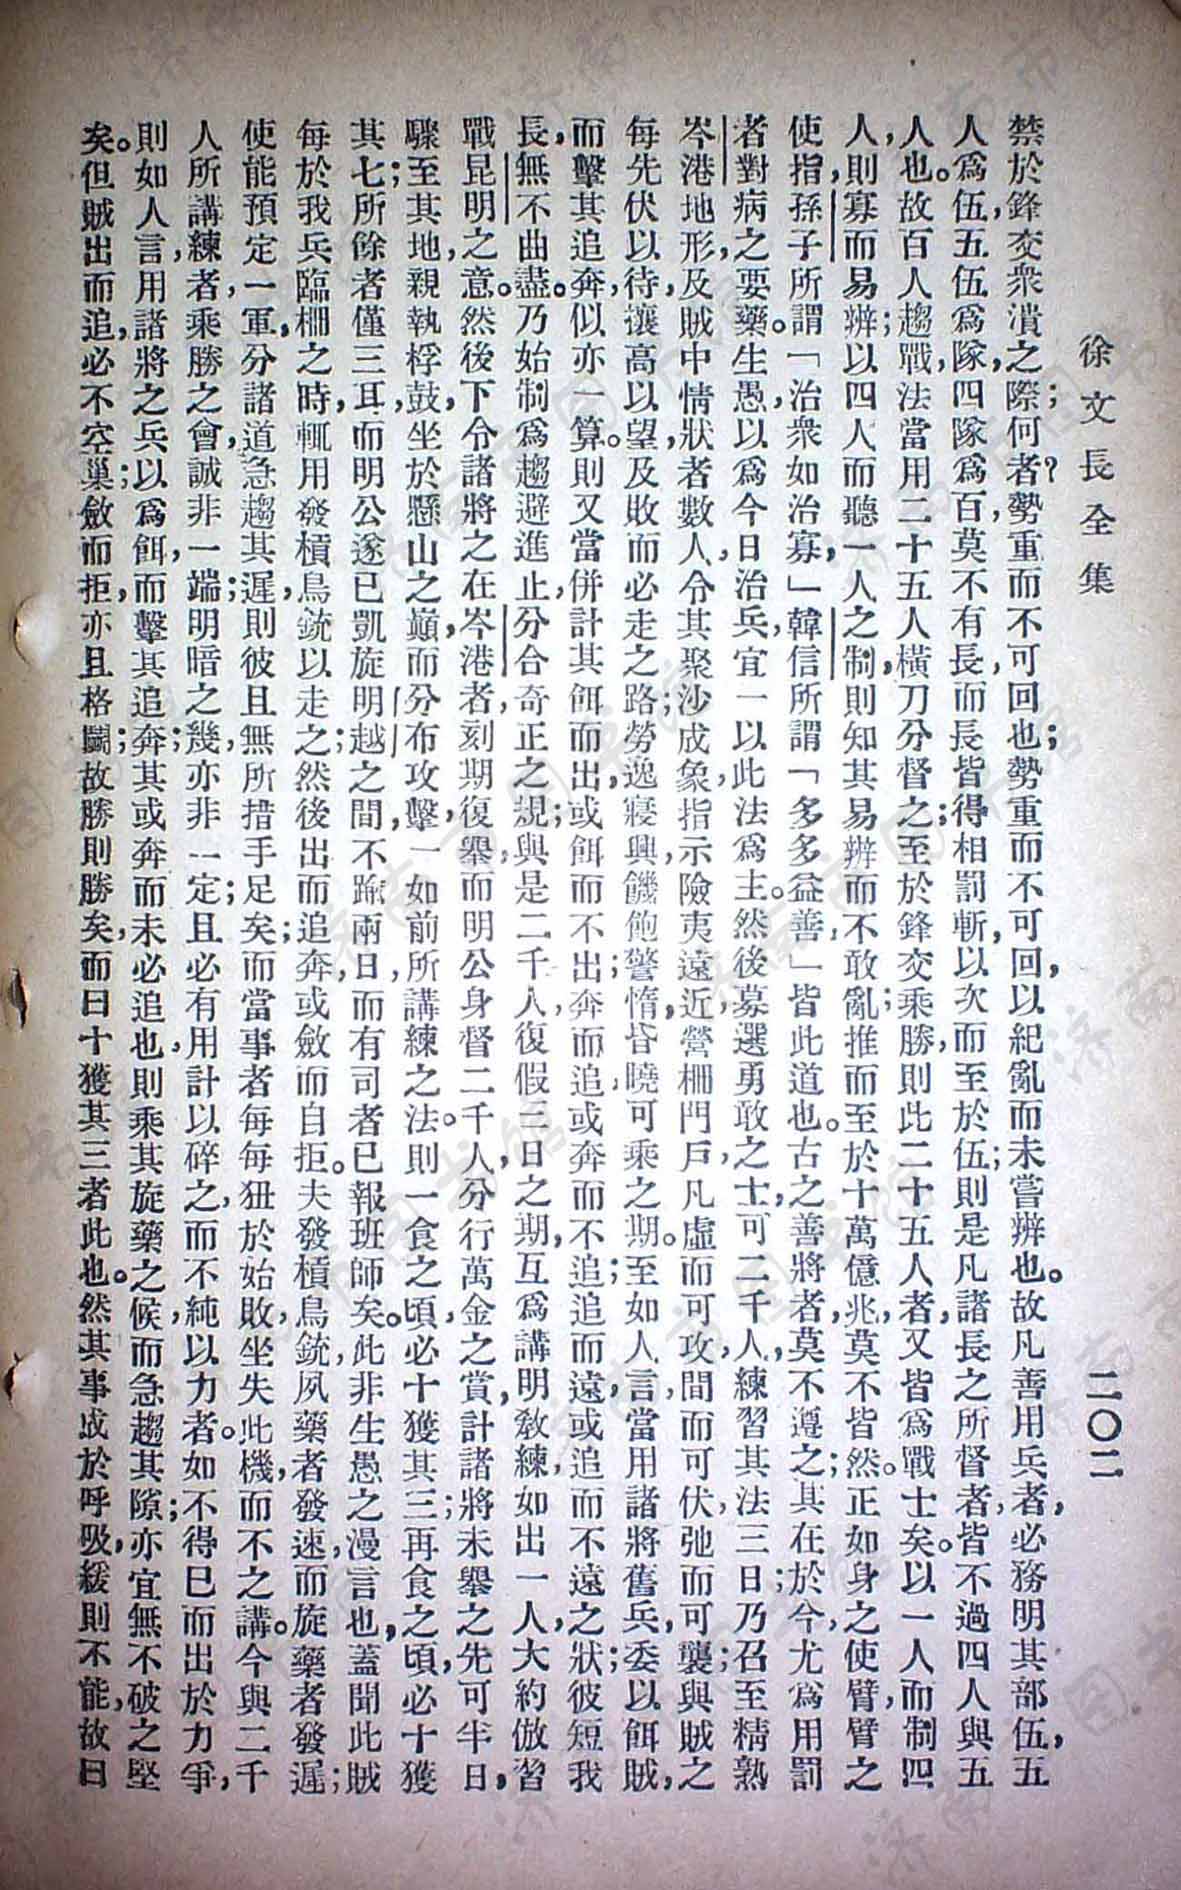 徐文長全集
二〇二
禁於鋒交衆潰之際；何者？勢重而不可回也；勢重而不可回，以紀亂而未嘗辨也。故凡善用兵者，必務明其部伍，五
人爲伍，五伍爲隊，四隊爲百，莫不有長，而長皆得相罰斬，以次而至於伍；則是凡諸長之所督者，皆不過四人與五
人也。故百人趨戰，法當用二十五人橫刀分督之；至於鋒交乘勝，則此二十五人者，又皆爲戰士矣。以一人而制四
人，則寡而易辨；以四人而聽一人之制，則知其易辨而不敢亂；推而至於十萬億兆，莫不皆然。正如身之使臂，臂之
使指，孫子所謂「治衆如治寡，」韓信所謂「多多益善，」皆此道也。古之善將者，莫不遵之；其在於今，尤爲用罰
者對病之要藥。生愚，以爲今日治兵，宜一以此法爲主。然後募選勇敢之士，可二千人，練習其法；三日乃召至精熟
岑港地形，及賊中情狀者數人，令其聚沙成象，指示險夷遠近，營柵門戶，凡虛而可攻，間而可伏，弛而可襲；與賊之
每先伏以待，攘高以望，及敗而必走之路；勞逸寢興，饑飽警惰，昏曉可乘之期。至如人言，當用諸將舊兵，委以餌賊，
而擊其追奔，似亦一算。則又當併計其餌而出，或餌而不出；奔而追，或奔而不追；追而遠，或追而不遠之狀；彼短我
長，無不曲盡。乃始制爲趨避進止，分合奇正之規；與是二千人，復假日之期，互爲講明教練，如出一人，大約倣習
戰昆明之意。然後下令諸將之在岑港者，刻期復舉，而明公身督二千人，分行萬金之賞，計諸將未舉之先，可半日，
驟至其地，親執桴鼓，坐於懸山之巔，而分布攻擊，一如前所講練之法。則一食之頃，必十獲其三；再食之頃，必十獲
其七；所餘者僅三耳，而明公遂已凱旋明越之間，不踰兩日，而有司者已報班師矣。此非生愚之漫言也，蓋聞此賊
每於我兵臨柵之時，輒用發槓鳥銃以走之；然後出而追奔，或斂而自拒。夫發槓鳥銃，夙藥者發速，而旋藥者發遲；
使能預定一軍，分諸道急趨其遲，則彼且無所措手足矣；而當事者每每狃於始敗，坐失此機，而不之講。今與二千
人所講練者，乘勝之會，誠非一端；明暗之幾，亦非一定；且必有用計以碎之，而不純以力者。如不得已而出於力爭，
則如人言，用諸將之兵以爲餌，而擊其追奔；其或奔而未必追也，則乘其旋藥之候，而急趨其隙；亦宜無不破之堅
矣。但賊出而追，必不空巢；斂而拒，亦且格鬭；故勝則勝矣，而曰十獲其三者此也。然其事成於呼吸，緩則不能，故曰